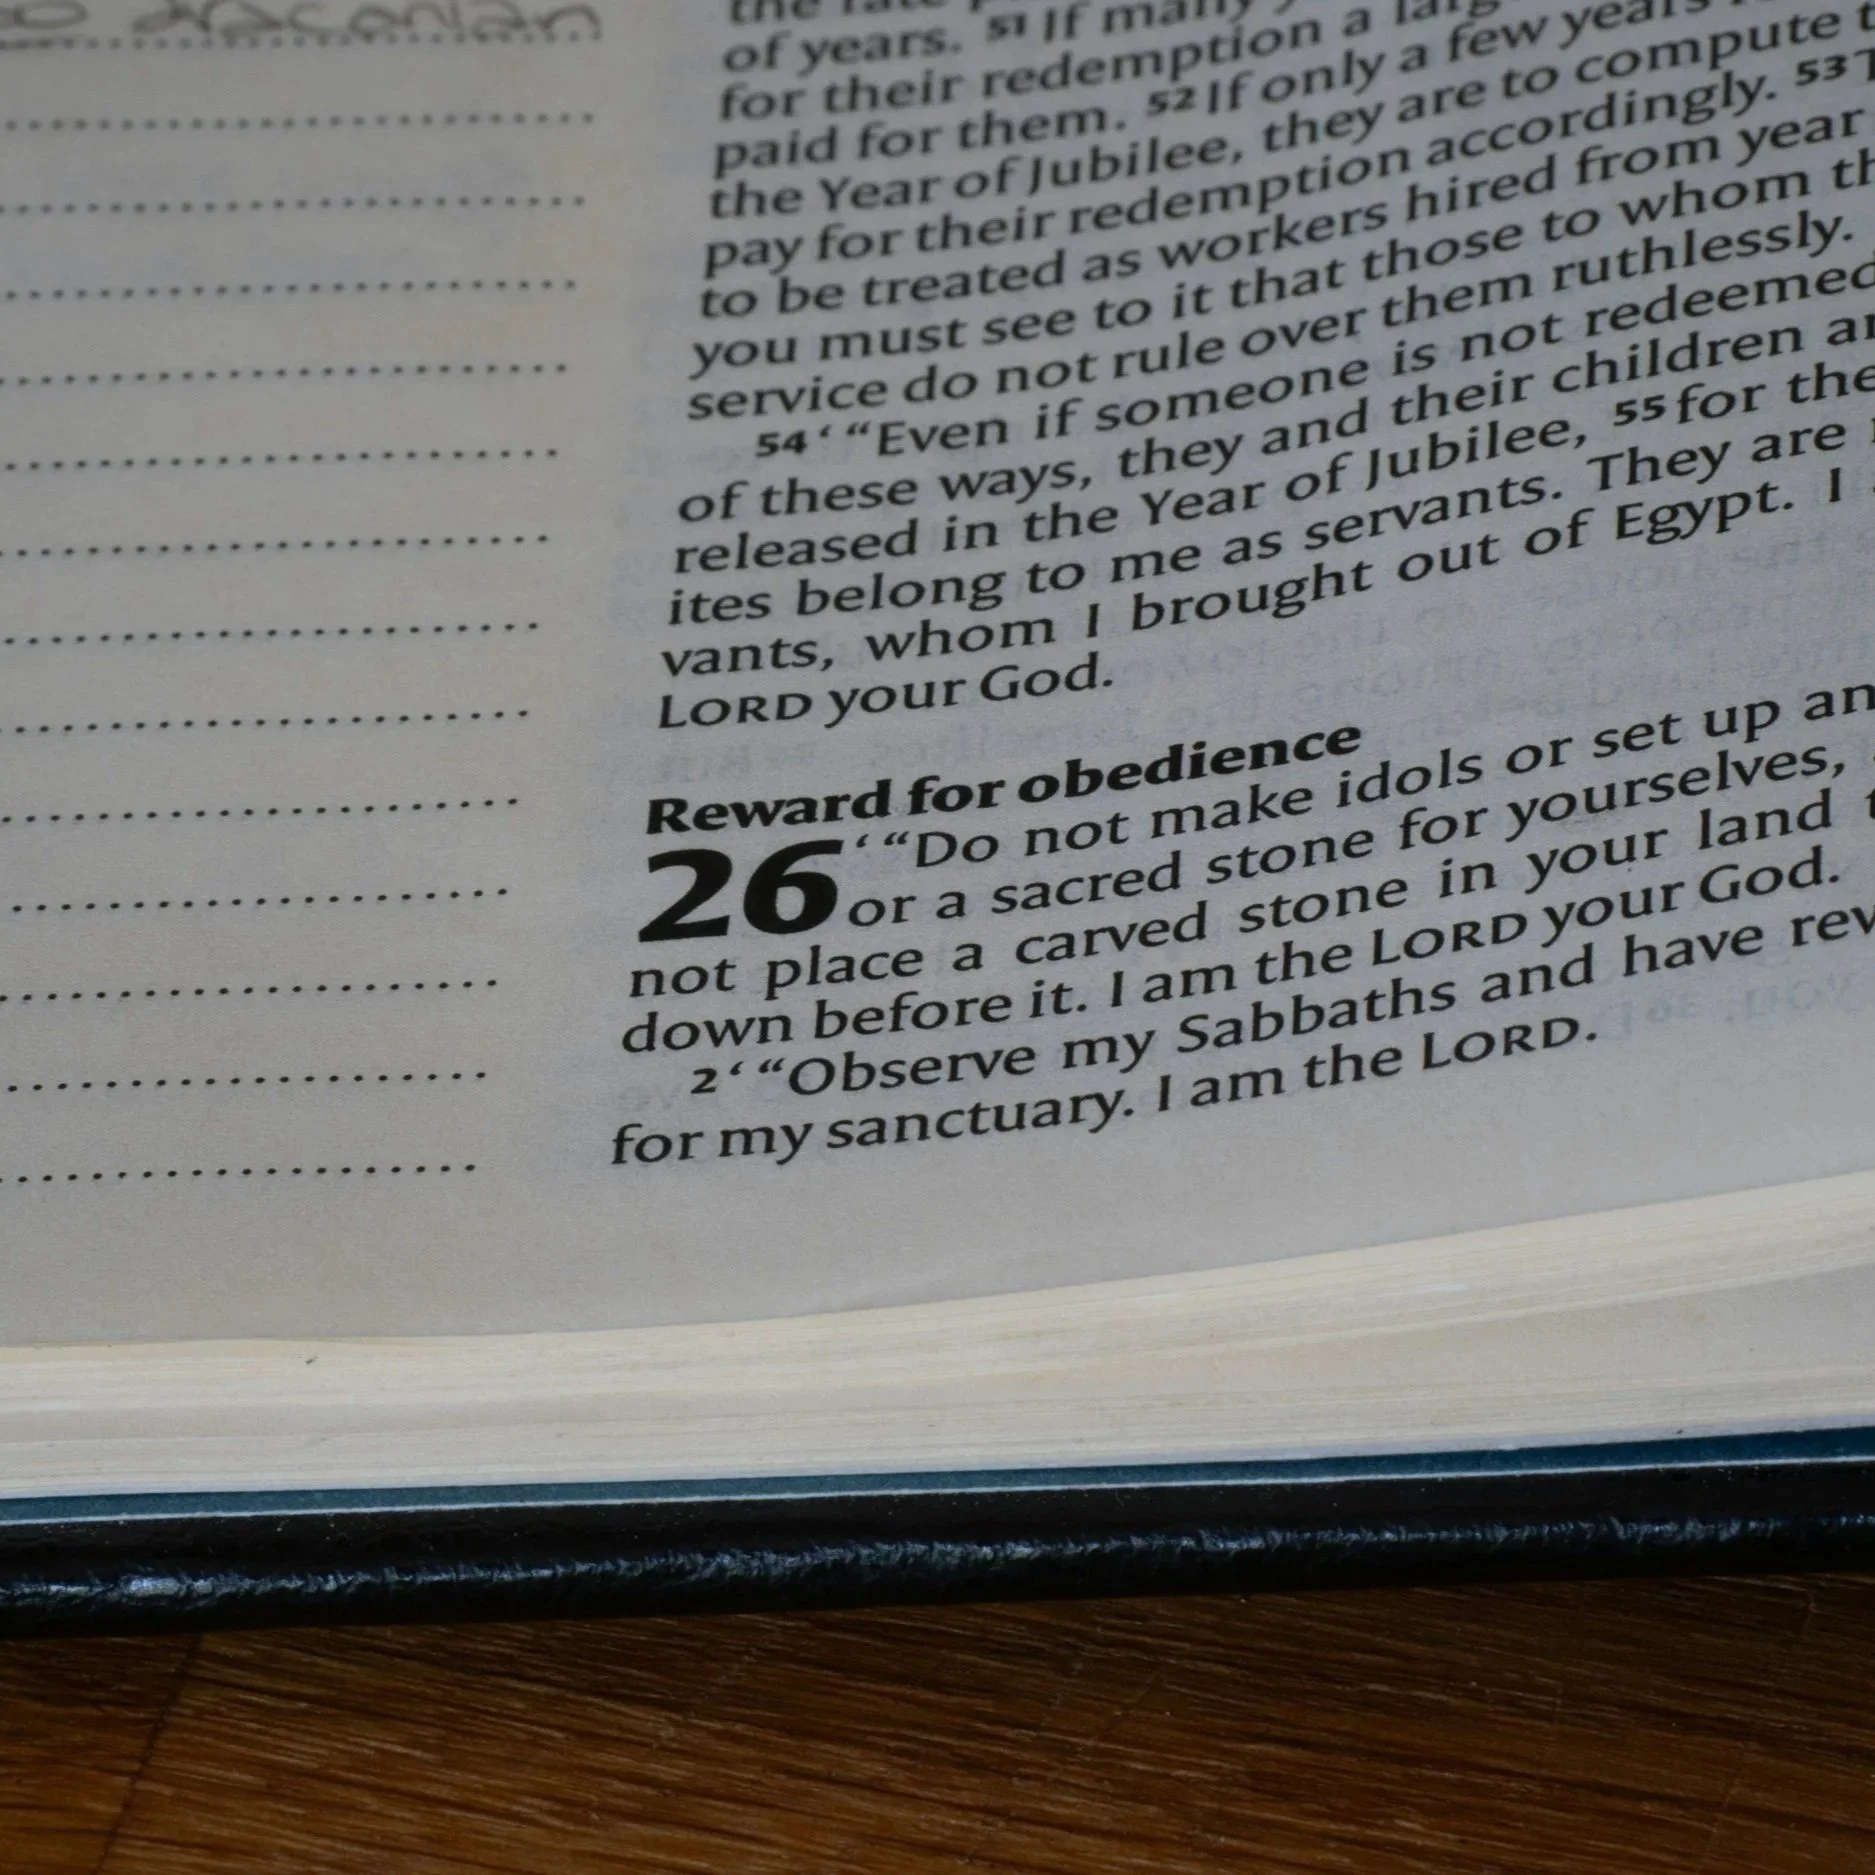 draconian
of years. 51 If many
for their redemption a
paid for them. 52 If only a few years
the Year of Jubilee, they are to compute
pay for their redemption accordingly. 53
to be treated as workers hired from year
you must see to it that those to whom
service do not rule over them ruthlessly.
54 ‘ “Even if someone is not redeemed
of these ways, they and their children
released in the Year of Jubilee, 55 for the
ites belong to me as servants. They are
vants, whom I brought out of Egypt. I
LORD your God.
Reward for obedience
26 ‘ “Do not make idols or set up an
or a sacred stone for yourselves,
not place a carved stone in your land
down before it. I am the LORD your God.
2 ‘ “Observe my Sabbaths and have rev
for my sanctuary. I am the LORD.